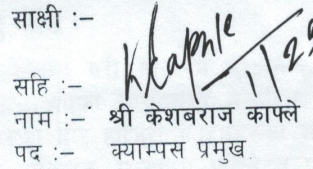 साक्षी :–
सहि :–
नाम :– श्री केशबराज काफ्ले
पद :– क्याम्पस प्रमुख